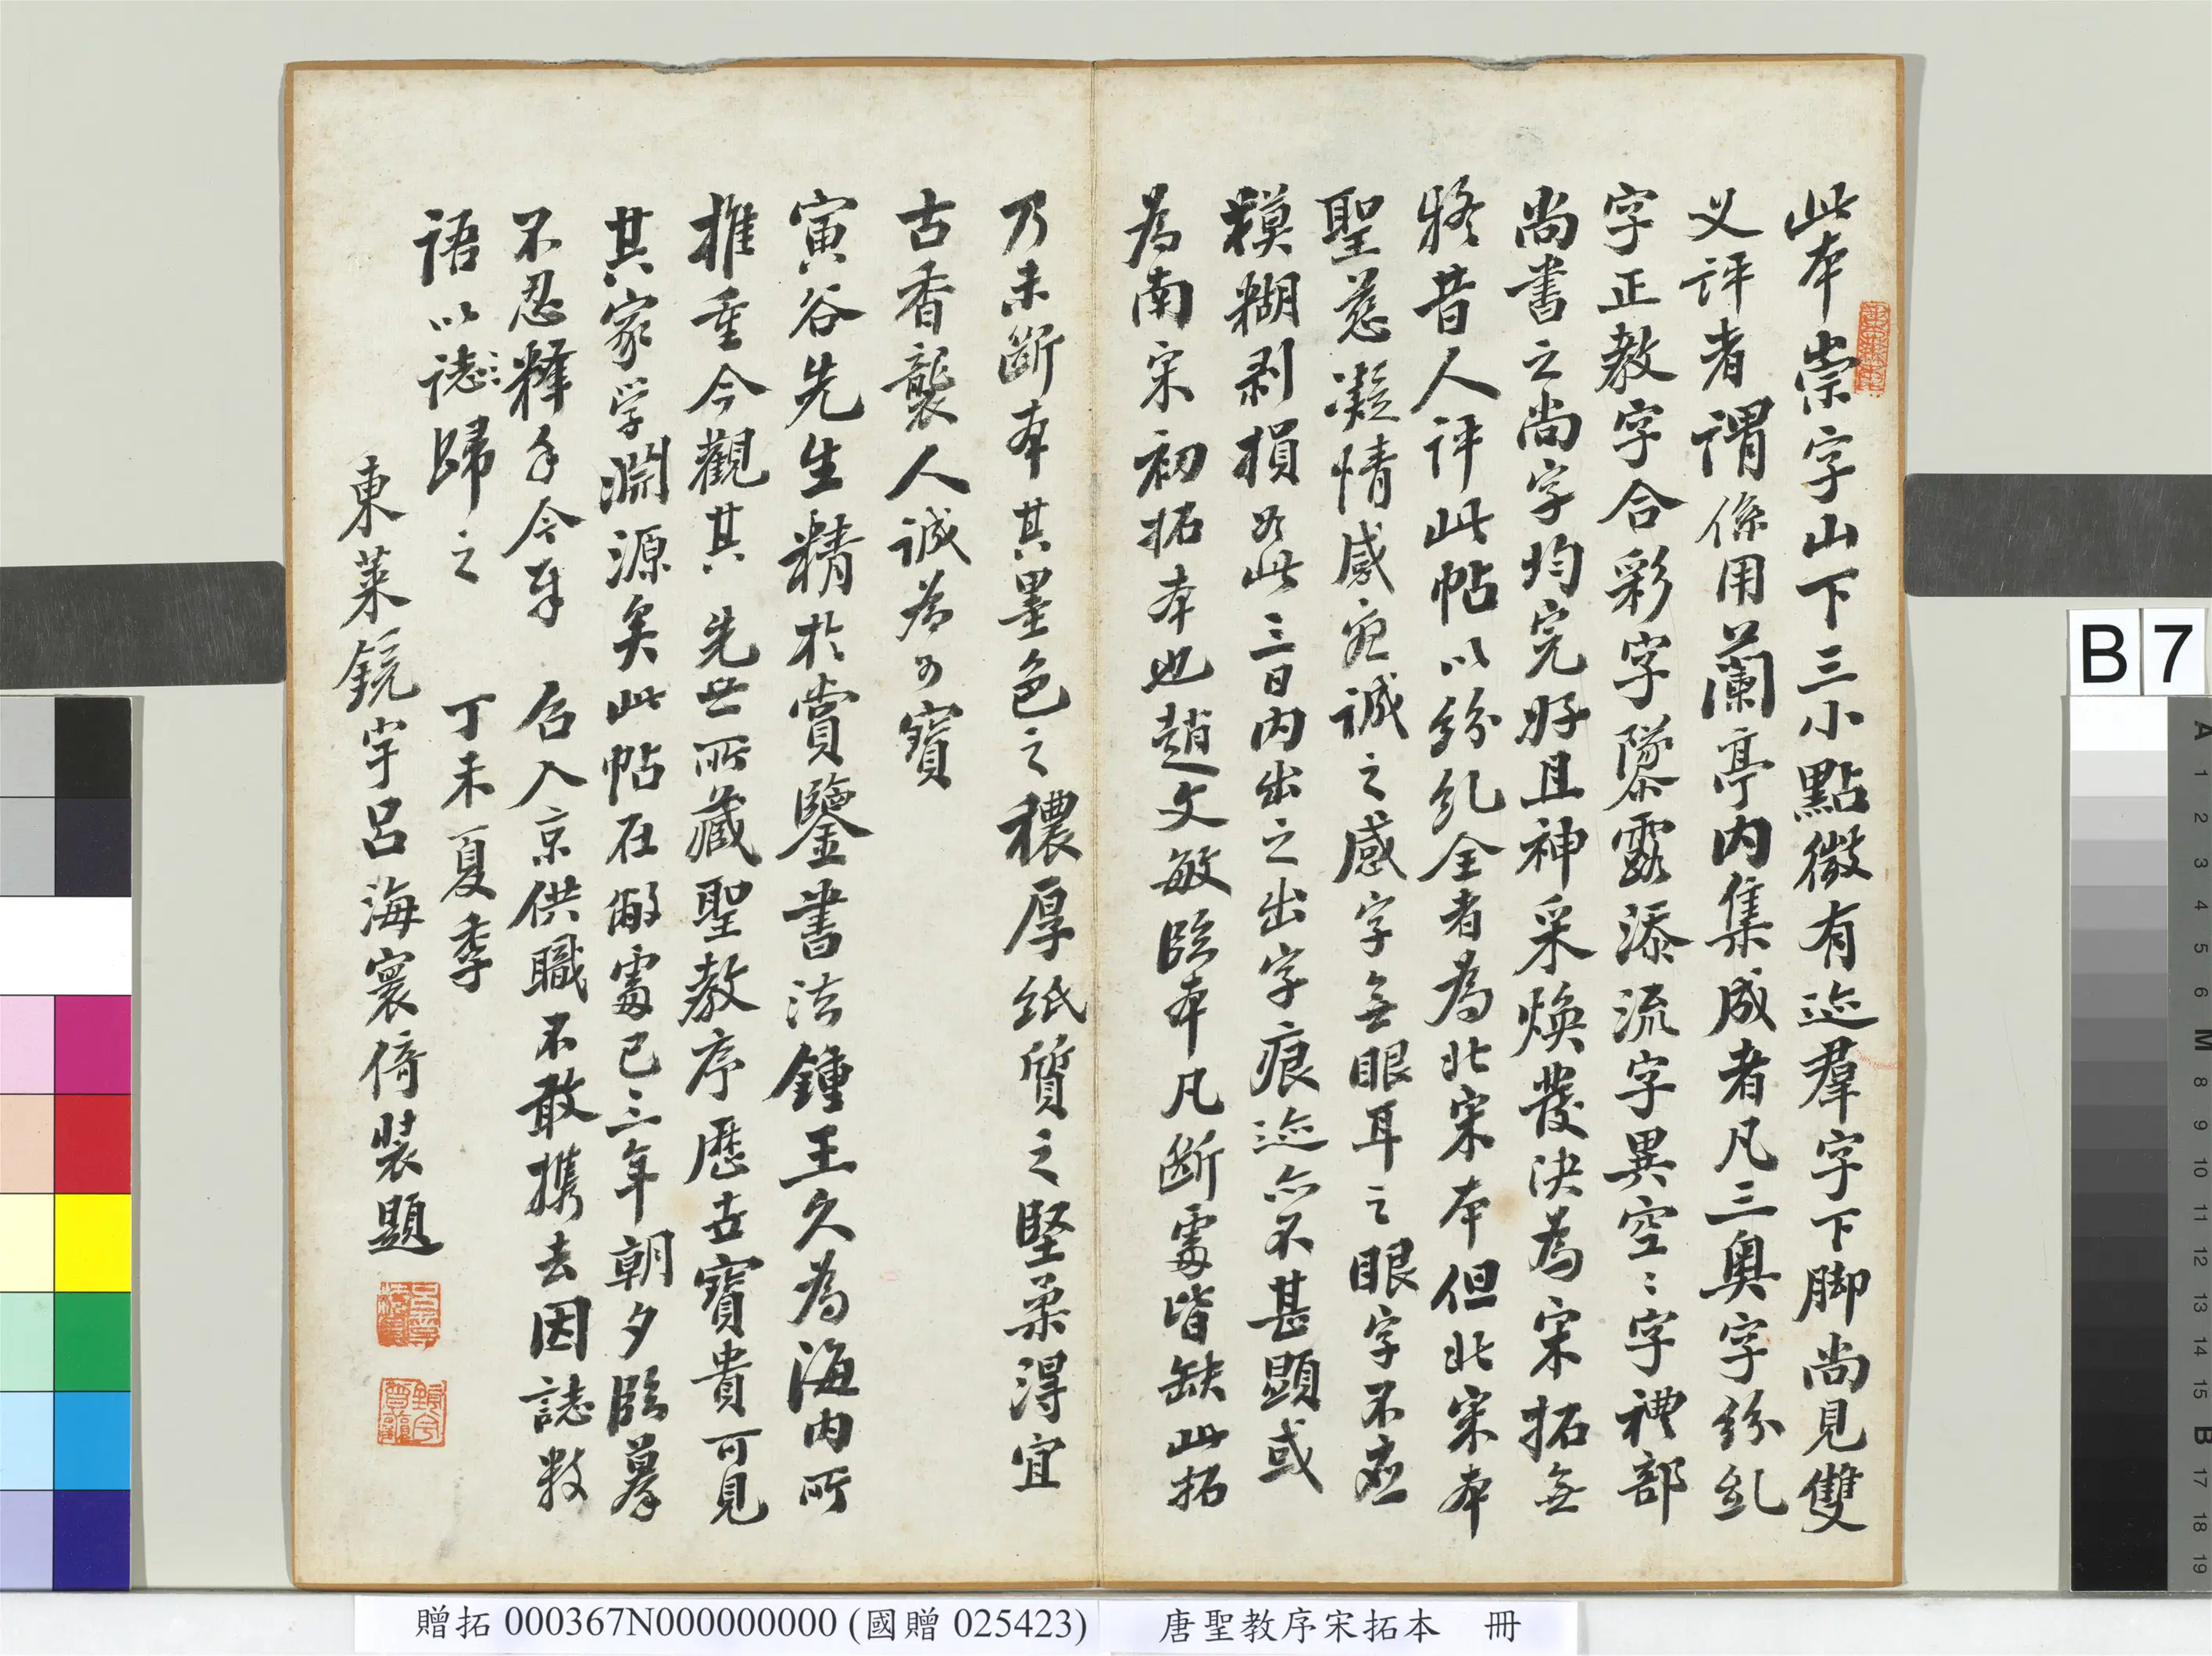 此本崇字山下三小點微有迹羣字下脚尚見雙
义評者謂係用蘭亭內集成者凡三奧字紛糺
字正教字合彩字隊露添流字異空〻字禮部
尚書之尚字均完好且神采煥發決為宋拓無
疑昔人評此帖以紛糺全者為北宋本但北宋本
聖慈凝情感處誠之感字無眼耳之眼字不應
糢糊剥損如此三日內出之出字痕迹亦不甚顯或
為南宋初拓本也趙文敏臨本凡斷處皆缺此拓
乃未斷本其墨色之穠厚紙質之堅柔淂宜
古香襲人誠為可寶
寅谷先生精於賞鑒書法鍾王久為海內所
推重今觀其先世所藏聖教序歷世寶貴可見
其家学淵源矣此帖在敝處已三年朝夕臨摹
不忍釋手今奉 召入京供職不敢携去因誌數
語以誌歸之 丁未夏季
東萊鏡宇呂海寰倚裝題
B7
贈拓 000367N000000000 (國贈 025423) 唐聖教序宋拓本 冊